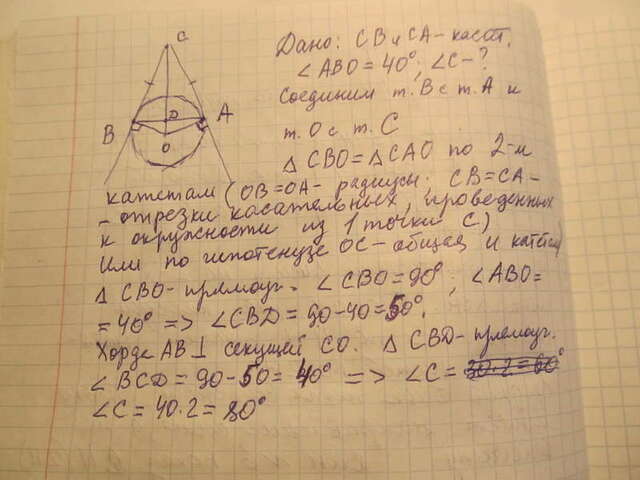 C
B
D
A
O
Дано: CB и CA - касат.
∠ABO = 40°; ∠C - ?
Соединим т. B с т. A и
т. O с т. C
△ CBO = △ CAO по 2-м
катетам (OB = OA - радиусы; CB = CA -
- отрезки касательных, проведенных
к окружности из 1 точки C)
Или по гипотенузе OC - общая и катетам
△ CBO - прямоуг. ∠ CBO = 90°; ∠ABO =
= 40° => ∠CBD = 90 - 40 = 50°.
Хорда AB ⊥ секущей CO. △ CBD - прямоуг.
∠ BCD = 90 - 50 = 40° => ∠C = 30·2 = 60°
∠C = 40·2 = 80°